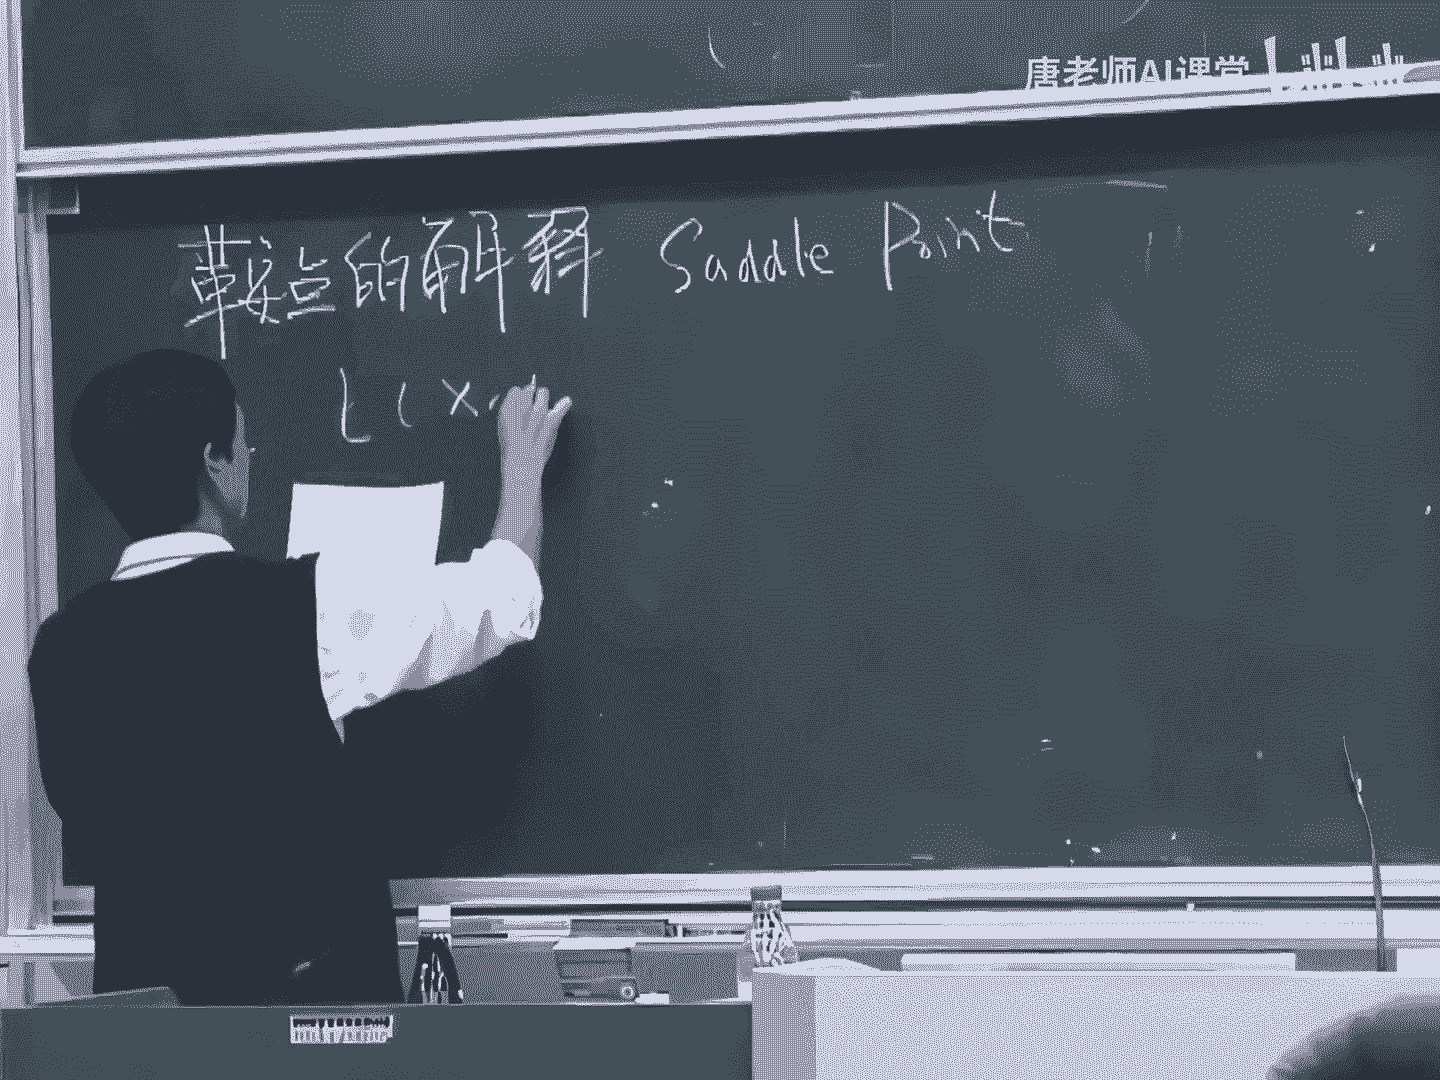 唐老师AI课堂
鞍点的解释 Saddle Point
L(x,